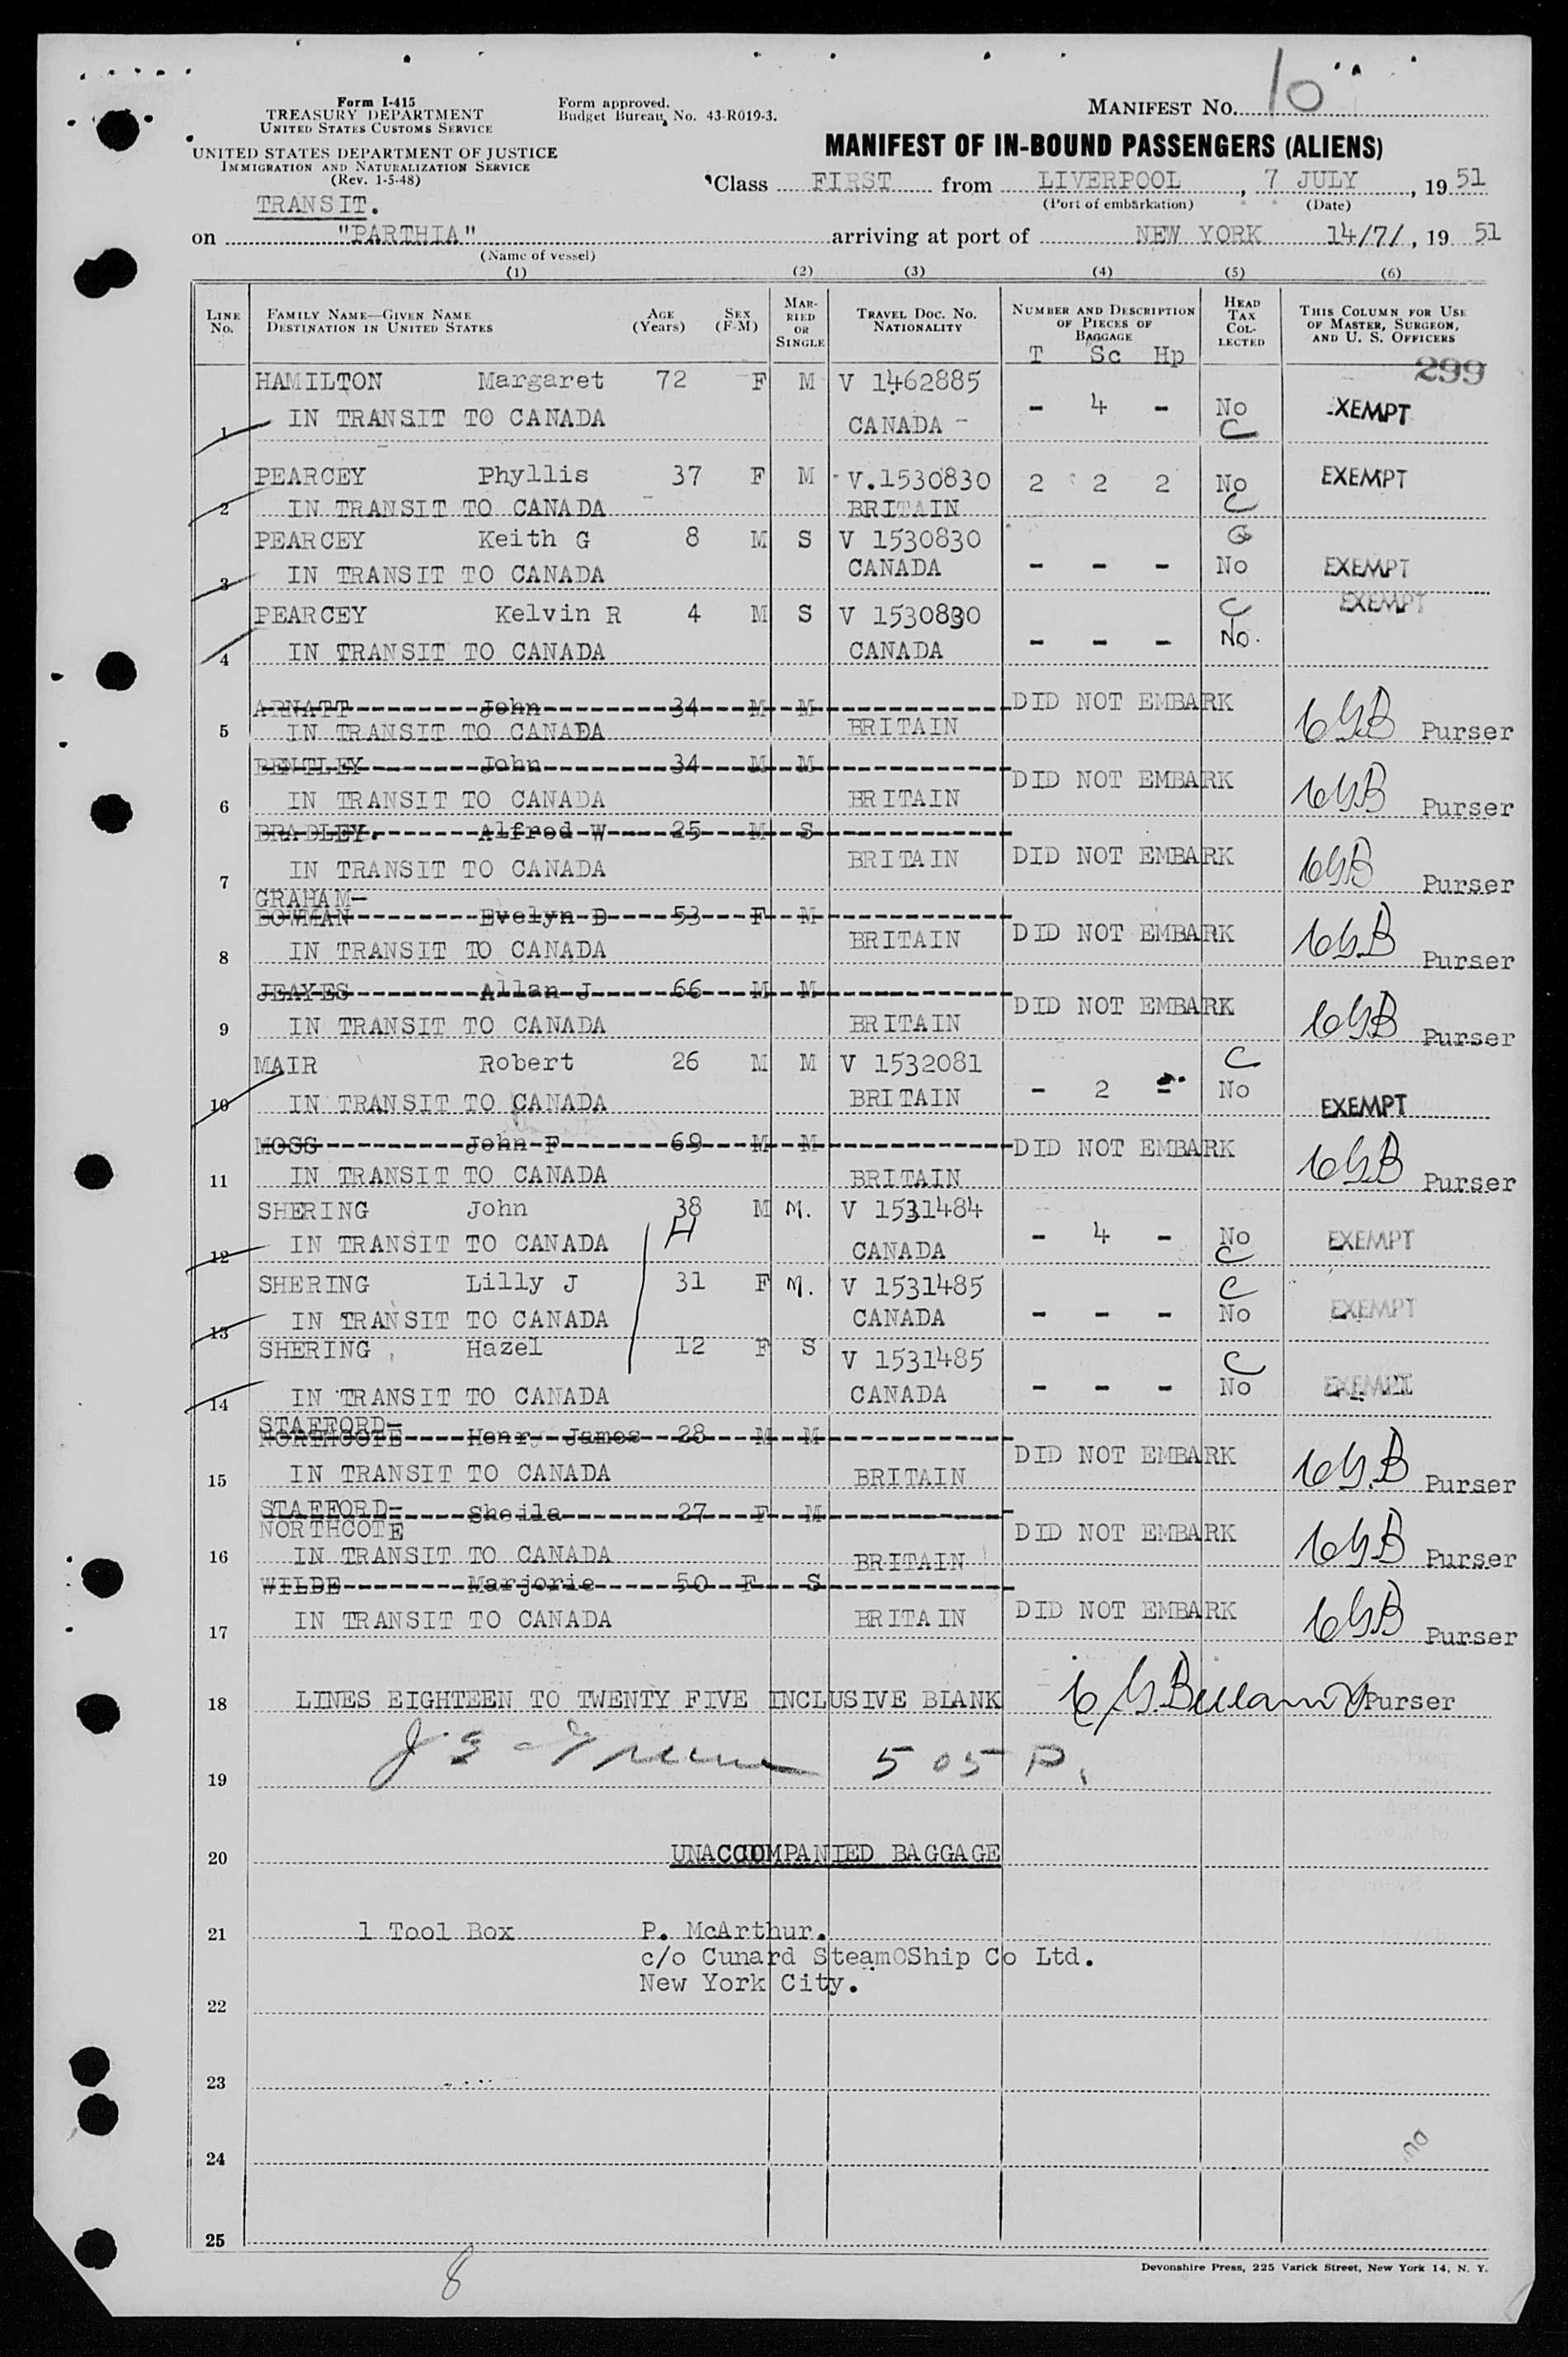 Form I-415
TREASURY DEPARTMENT
UNITED STATES CUSTOMS SERVICE
UNITED STATES DEPARTMENT OF JUSTICE
IMMIGRATION AND NATURALIZATION SERVICE
(Rev. 1-5-48)
Form approved.
Budget Bureau No. 43-R019-3.
MANIFEST NO. 10
MANIFEST OF IN-BOUND PASSENGERS (ALIENS)
Class FIRST from LIVERPOOL, 7 JULY, 19 51
(Port of embarkation) (Date)
TRANSIT.
on "PARTHIA" arriving at port of NEW YORK 14/7/, 19 51
(Name of vessel)
(1) (2) (3) (4) (5) (6)
LINE NO. FAMILY NAME—GIVEN NAME DESTINATION IN UNITED STATES AGE (Years) SEX (F-M) MARRIED OR SINGLE TRAVEL DOC. NO. NATIONALITY NUMBER AND DESCRIPTION OF PIECES OF BAGGAGE HEAD TAX COLLECTED THIS COLUMN FOR USE OF MASTER, SURGEON, AND U. S. OFFICERS
T Sc Hp
299
HAMILTON Margaret 72 F M V 1462885
1 IN TRANSIT TO CANADA CANADA - - 4 - No C EXEMPT
PEARCEY Phyllis 37 F M V.1530830 2 2 2 No EXEMPT
2 IN TRANSIT TO CANADA BRITAIN C
PEARCEY Keith G 8 M S V 1530830
3 IN TRANSIT TO CANADA CANADA - - - No EXEMPT
PEARCEY Kelvin R 4 M S V 1530830 C EXEMPT
4 IN TRANSIT TO CANADA CANADA - - - No.
ARNATT John 34 M M DID NOT EMBARK
5 IN TRANSIT TO CANADA BRITAIN CGB Purser
BENTLEY John 34 M M DID NOT EMBARK
6 IN TRANSIT TO CANADA BRITAIN CGB Purser
BRADLEY. Alfred W 25 M S
7 IN TRANSIT TO CANADA BRITAIN DID NOT EMBARK CGB Purser
GRAHAM-
BOWMAN Evelyn D 53 F M
8 IN TRANSIT TO CANADA BRITAIN DID NOT EMBARK CGB Purser
JEAYES Allan J 66 M M DID NOT EMBARK
9 IN TRANSIT TO CANADA BRITAIN CGB Purser
MAIR Robert 26 M M V 1532081 C
10 IN TRANSIT TO CANADA BRITAIN - 2 - No EXEMPT
MOSS John F 69 M M DID NOT EMBARK
11 IN TRANSIT TO CANADA BRITAIN CGB Purser
SHERING John 38 M M. V 1531484
12 IN TRANSIT TO CANADA CANADA - 4 - No C EXEMPT
SHERING Lilly J 31 F M. V 1531485 C
13 IN TRANSIT TO CANADA CANADA - - - No EXEMPT
SHERING Hazel 12 F S V 1531485 C
14 IN TRANSIT TO CANADA CANADA - - - No EXEMPT
STAFFORD-
NORTHCOTE Henry James 28 M M DID NOT EMBARK
15 IN TRANSIT TO CANADA BRITAIN CGB Purser
STAFFORD- Sheila 27 F M
NORTHCOTE DID NOT EMBARK
16 IN TRANSIT TO CANADA BRITAIN CGB Purser
WILDE Marjorie 50 F S
17 IN TRANSIT TO CANADA BRITAIN DID NOT EMBARK CGB Purser
18 LINES EIGHTEEN TO TWENTY FIVE INCLUSIVE BLANK C G. Bellamy Purser
19 505 P.
20 UNACCOMPANIED BAGGAGE
21 1 Tool Box P. McArthur.
c/o Cunard SteamOShip Co Ltd.
New York City.
22
23
24
25
8
Devonshire Press, 225 Varick Street, New York 14, N. Y.